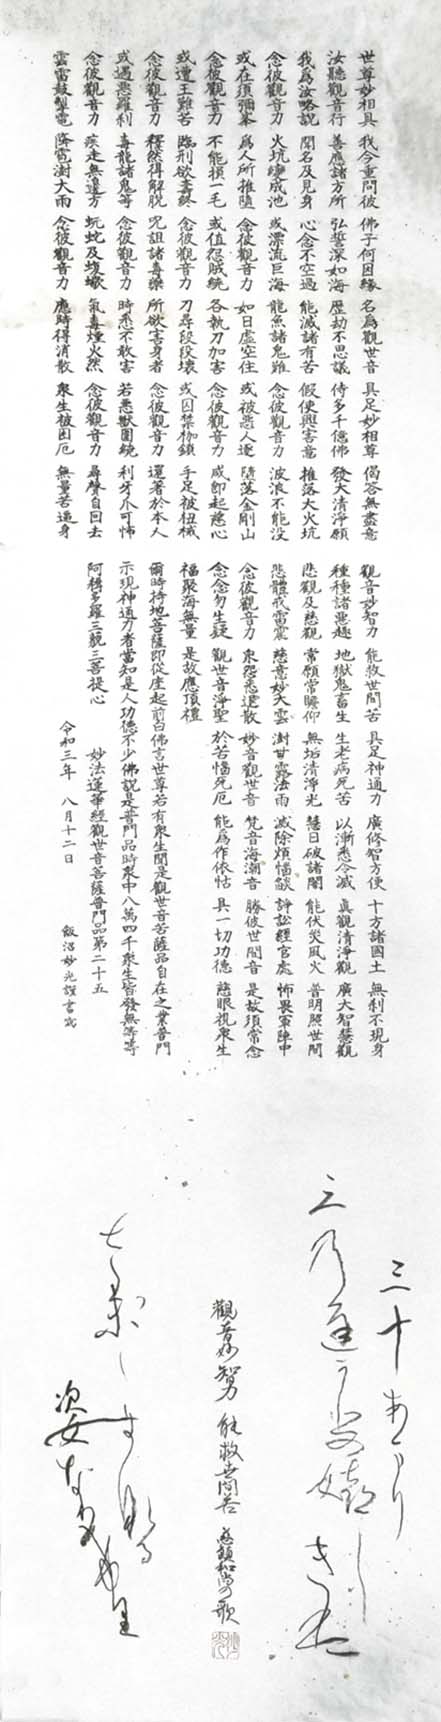 世尊妙相具 我今重問彼 佛子何因緣 名為觀世音 具足妙相尊 偈答無盡意
汝聽觀音行 善應諸方所 弘誓深如海 歷劫不思議 侍多千億佛 發大清淨願
我為汝略說 聞名及見身 心念不空過 能滅諸有苦 假使興害意 推落大火坑
念彼觀音力 火坑變成池 或漂流巨海 龍魚諸鬼難 念彼觀音力 波浪不能没
或在須彌峯 為人所推墮 念彼觀音力 如日虛空住 或被惡人逐 墮落金剛山
念彼觀音力 不能損一毛 或值怨賊繞 各執刀加害 念彼觀音力 咸即起慈心
或遭王難苦 臨刑欲壽終 念彼觀音力 刀尋段段壞 或囚禁枷鎖 手足被杻械
念彼觀音力 釋然得解脫 呪詛諸毒藥 所欲害身者 念彼觀音力 還著於本人
或遇惡羅刹 毒龍諸鬼等 念彼觀音力 時悉不敢害 若惡獸圍繞 利牙爪可怖
念彼觀音力 疾走無邊方 蚖蛇及蝮蠍 氣毒煙火然 念彼觀音力 尋聲自回去
雲雷鼓掣電 降雹澍大雨 念彼觀音力 應時得消散 衆生被困厄 無量苦逼身
觀音妙智力 能救世間苦 具足神通力 廣修智方便 十方諸國土 無刹不現身
種種諸惡趣 地獄鬼畜生 生老病死苦 以漸悉令滅 真觀清淨觀 廣大智慧觀
悲觀及慈觀 常願常瞻仰 無垢清淨光 慧日破諸闇 能伏災風火 普明照世間
悲體戒雷震 慈意妙大雲 澍甘露法雨 滅除煩惱燄 諍訟經官處 怖畏軍陣中
念彼觀音力 衆怨悉退散 妙音觀世音 梵音海潮音 勝彼世間音 是故須常念
念念勿生疑 觀世音淨聖 於苦惱死厄 能為作依怙 具一切功德 慈眼視衆生
福聚海無量 是故應頂禮
爾時持地菩薩即從座起前白佛言世尊若有衆生聞是觀世音菩薩品自在之業普門
示現神通力者當知是人功德不少佛說是普門品時衆中八萬四千衆生皆發無等等
阿耨多羅三藐三菩提心
妙法蓮華經觀世音菩薩普門品第二十五
令和三年 八月十二日 飯沼妙光謹書
三十あまり
觀音妙智力 能救世間苦 慈鎮和尚歌